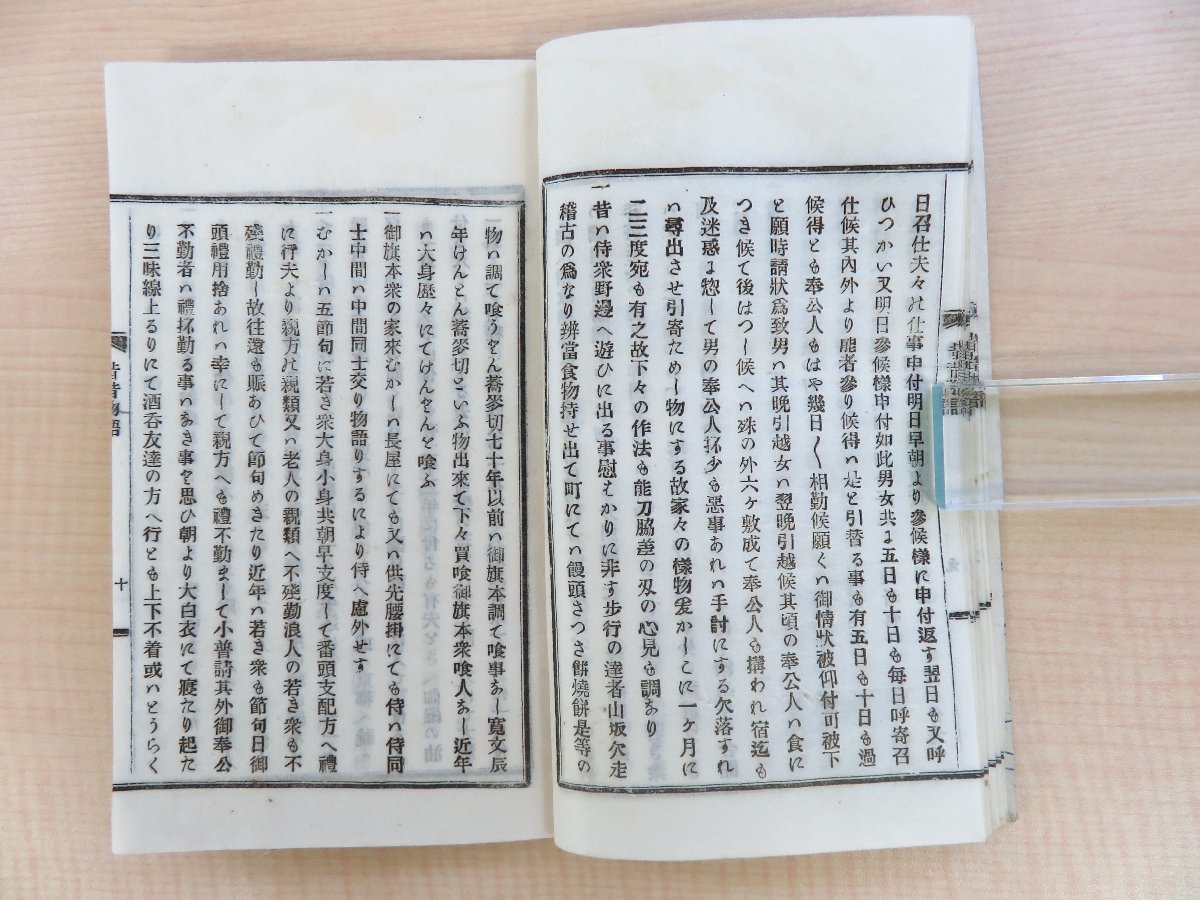 日召仕夫々に仕事申付明日早朝より參候樣に申付返す翌日も又呼
ひつかい又明日參候樣申付如此男女共に五日も十日も毎日呼寄召
仕候其內外より能者參り候得ハ是と引替る事も有五日も十日も過
候得とも奉公人もはや幾日〱相勤候願くハ御情狀被仰付可被下
と願時請狀爲致男ハ其晩引越女ハ翌晩引越候其頃の奉公人ハ食に
つき候て後はつし候へハ殊の外六ケ敷成て奉公人も搆われ宿迄も
及迷惑ま惣して男の奉公人抔少も惡事あれハ手討にする欠落すれ
ハ尋出させ引寄ためし物にする故家々の樣物爰かしこに一ケ月に
二三度宛も有之故下々の作法も能刀脇差の刄の心見も調あり
一昔ハ侍衆野邊へ遊ひに出る事慰はかりに非す步行の達者山坂欠走
稽古の爲なり辨當食物持せ出て町にてハ饅頭さつさ餅燒餅是等の
一物ハ調て喰うをん蕎麥切七十年以前ハ御旗本調て喰事なし寬文辰
年けんとん蕎麥切といふ物出來て下々買喰御旗本衆喰人なし近年
ハ大身歷々にてけんをんと喰ふ
一御旗本衆の家來むかしハ長屋にても又ハ供先腰掛にても侍ハ侍同
士中間ハ中間同士交り物語りするにより侍へ慮外せす
一むかしハ五節句に若き衆大身小身共朝早支度して番頭支配方へ禮
に行夫より親方に親類又ハ老人の親類へ不殘勤浪人の若き衆も不
殘禮勤し故往還も賑あひて節句めきたり近年ハ若き衆も節句日御
頭禮用捨あれハ幸にして親方へも禮不勤まして小普請其外御奉公
不勤者ハ禮抔勤る事ハなき事を思ひ朝より大白衣にて寢たり起た
り三味線上るりにて酒呑友達の方へ行とも上下不着或ハとうらく
昔昔物語
十